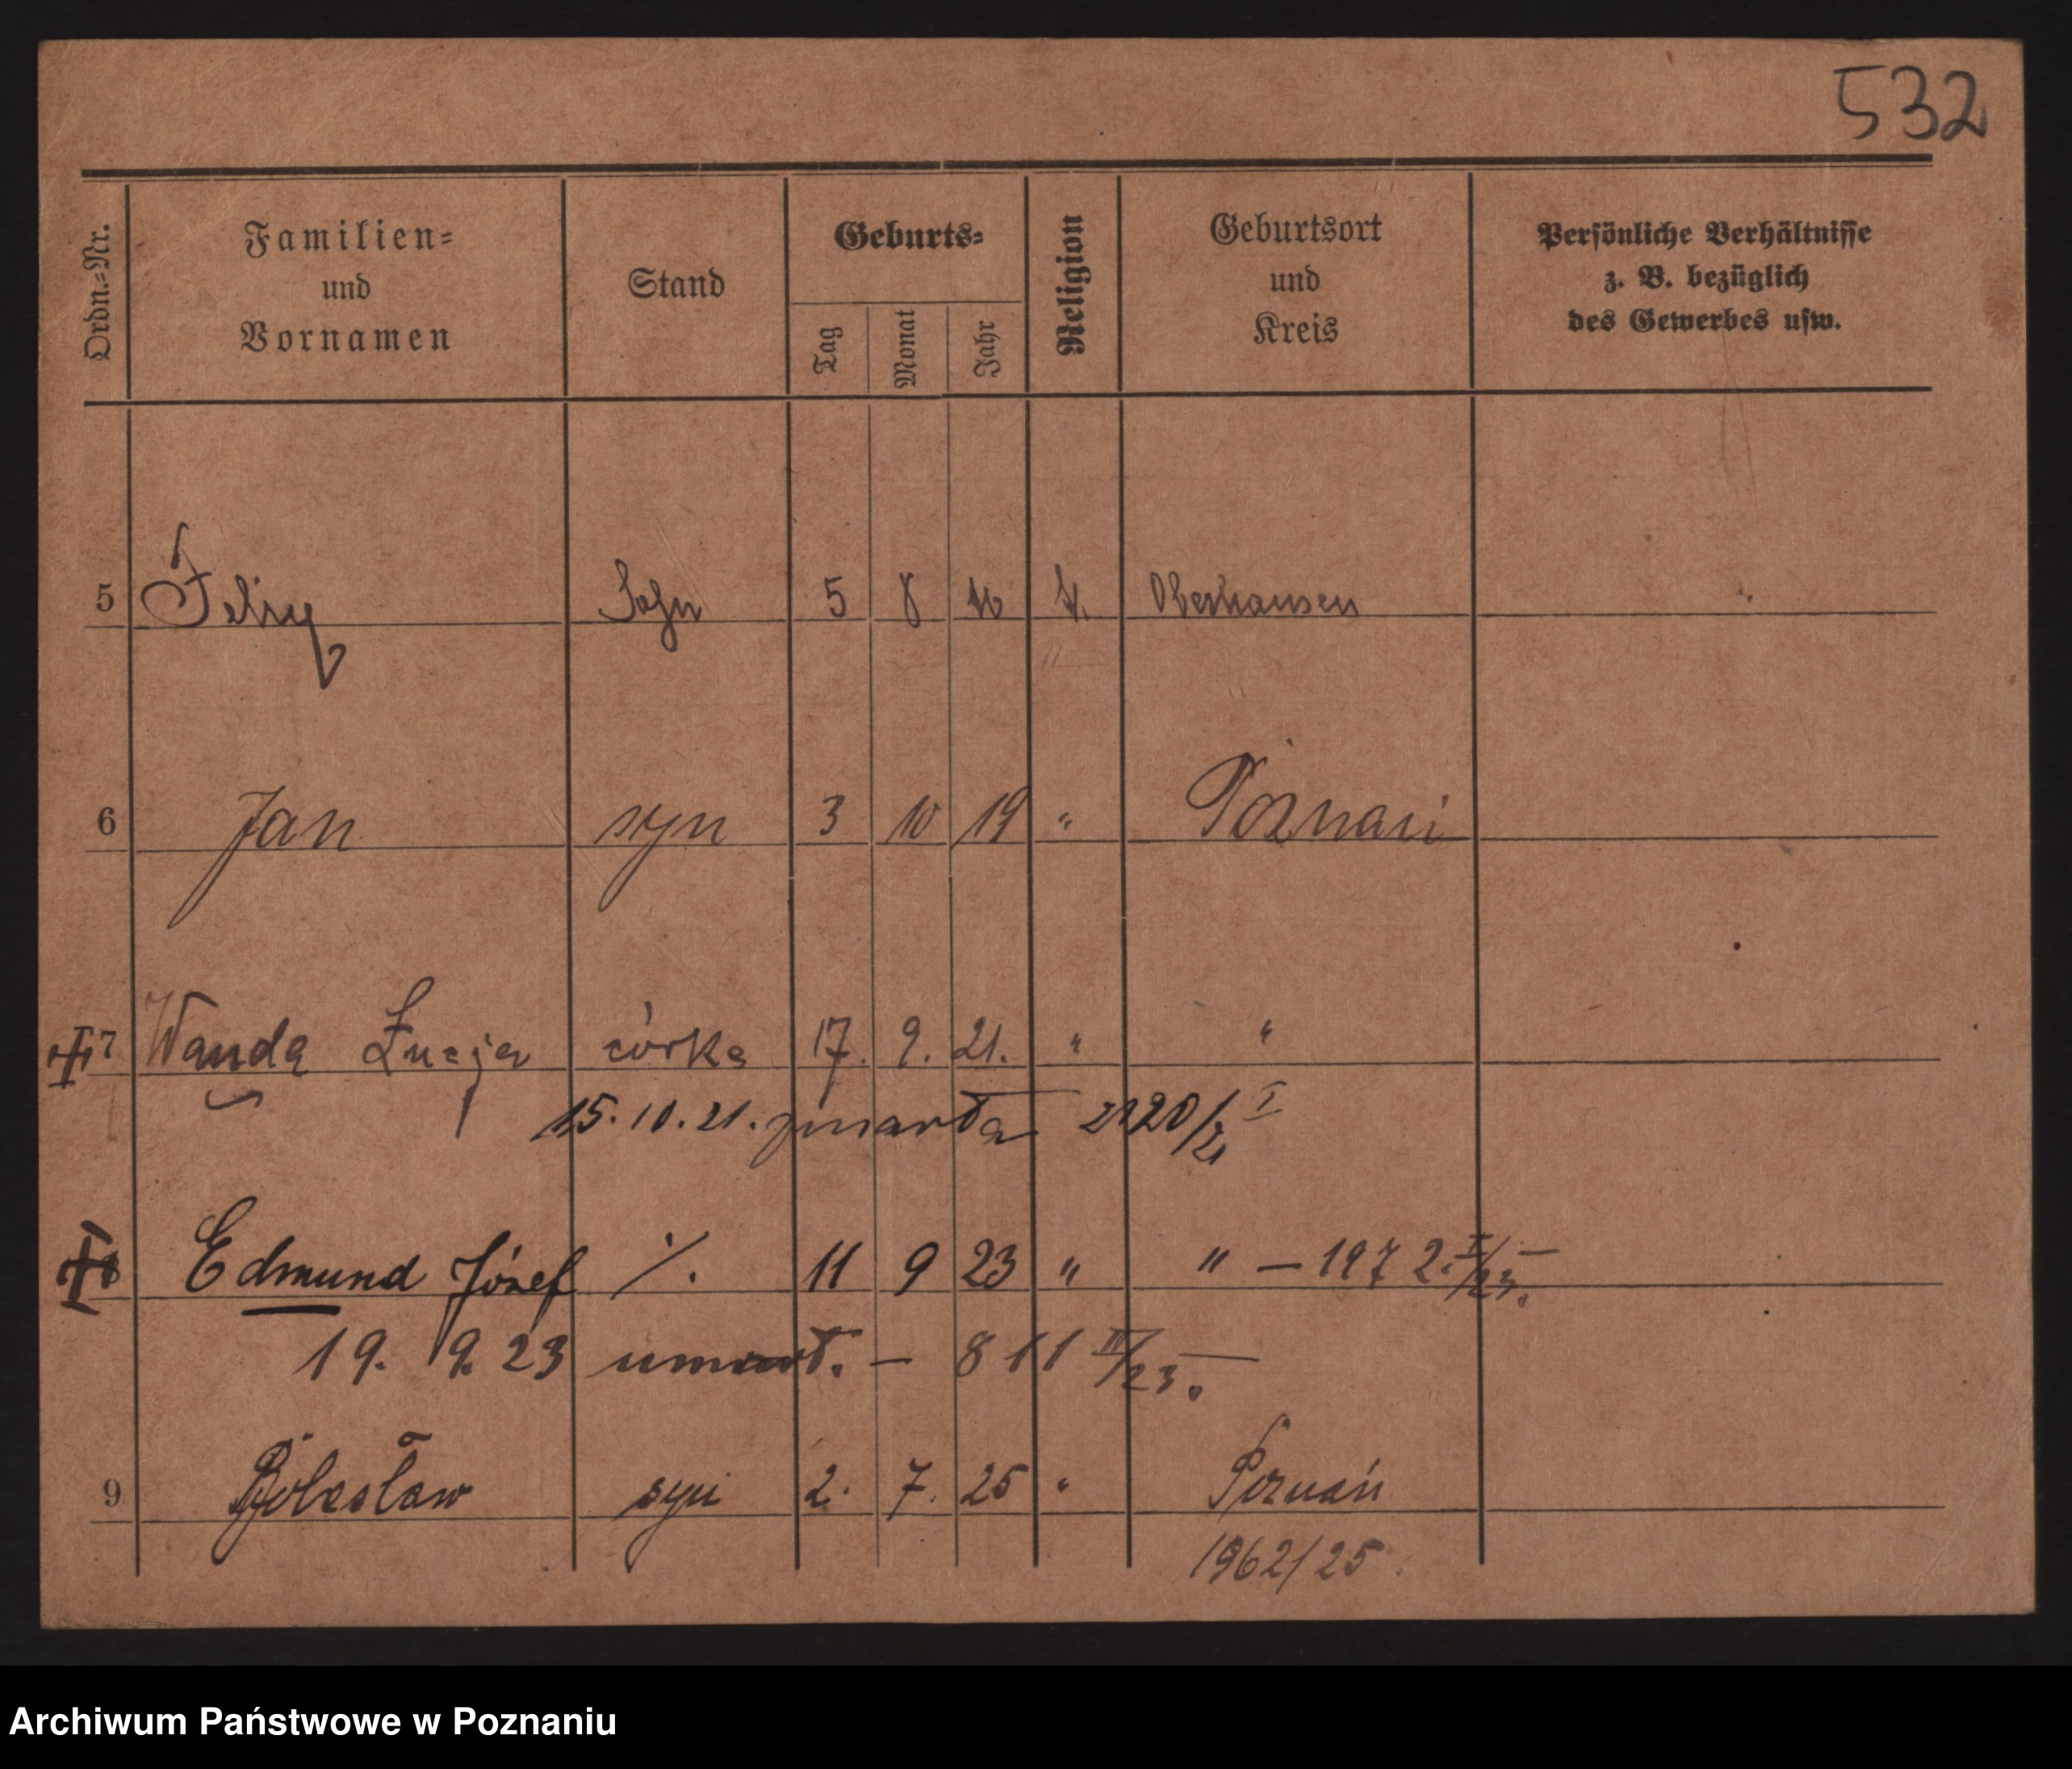 532
Ordn.-Nr.
Familien-
und
Vornamen
Stand
Geburts-
Tag
Monat
Jahr
Religion
Geburtsort
und
Kreis
Persönliche Verhältnisse
z. B. bezüglich
des Gewerbes usw.
5 Felix Sohn 5 8 16 k. Oberhausen
6 Jan syn 3 10 19 " Poznań
7 Wanda Łucja córka 17. 9. 21. " "
15. 10. 21. zmarła 2120/21 I
8 Edmund Józef ·/. 11 9 23 " " — 1972 I/23. —
19. 9. 23 umarł. — 811 III/23. —
9 Bolesław syn 2. 7. 25 " Poznań
1962/25
Archiwum Państwowe w Poznaniu